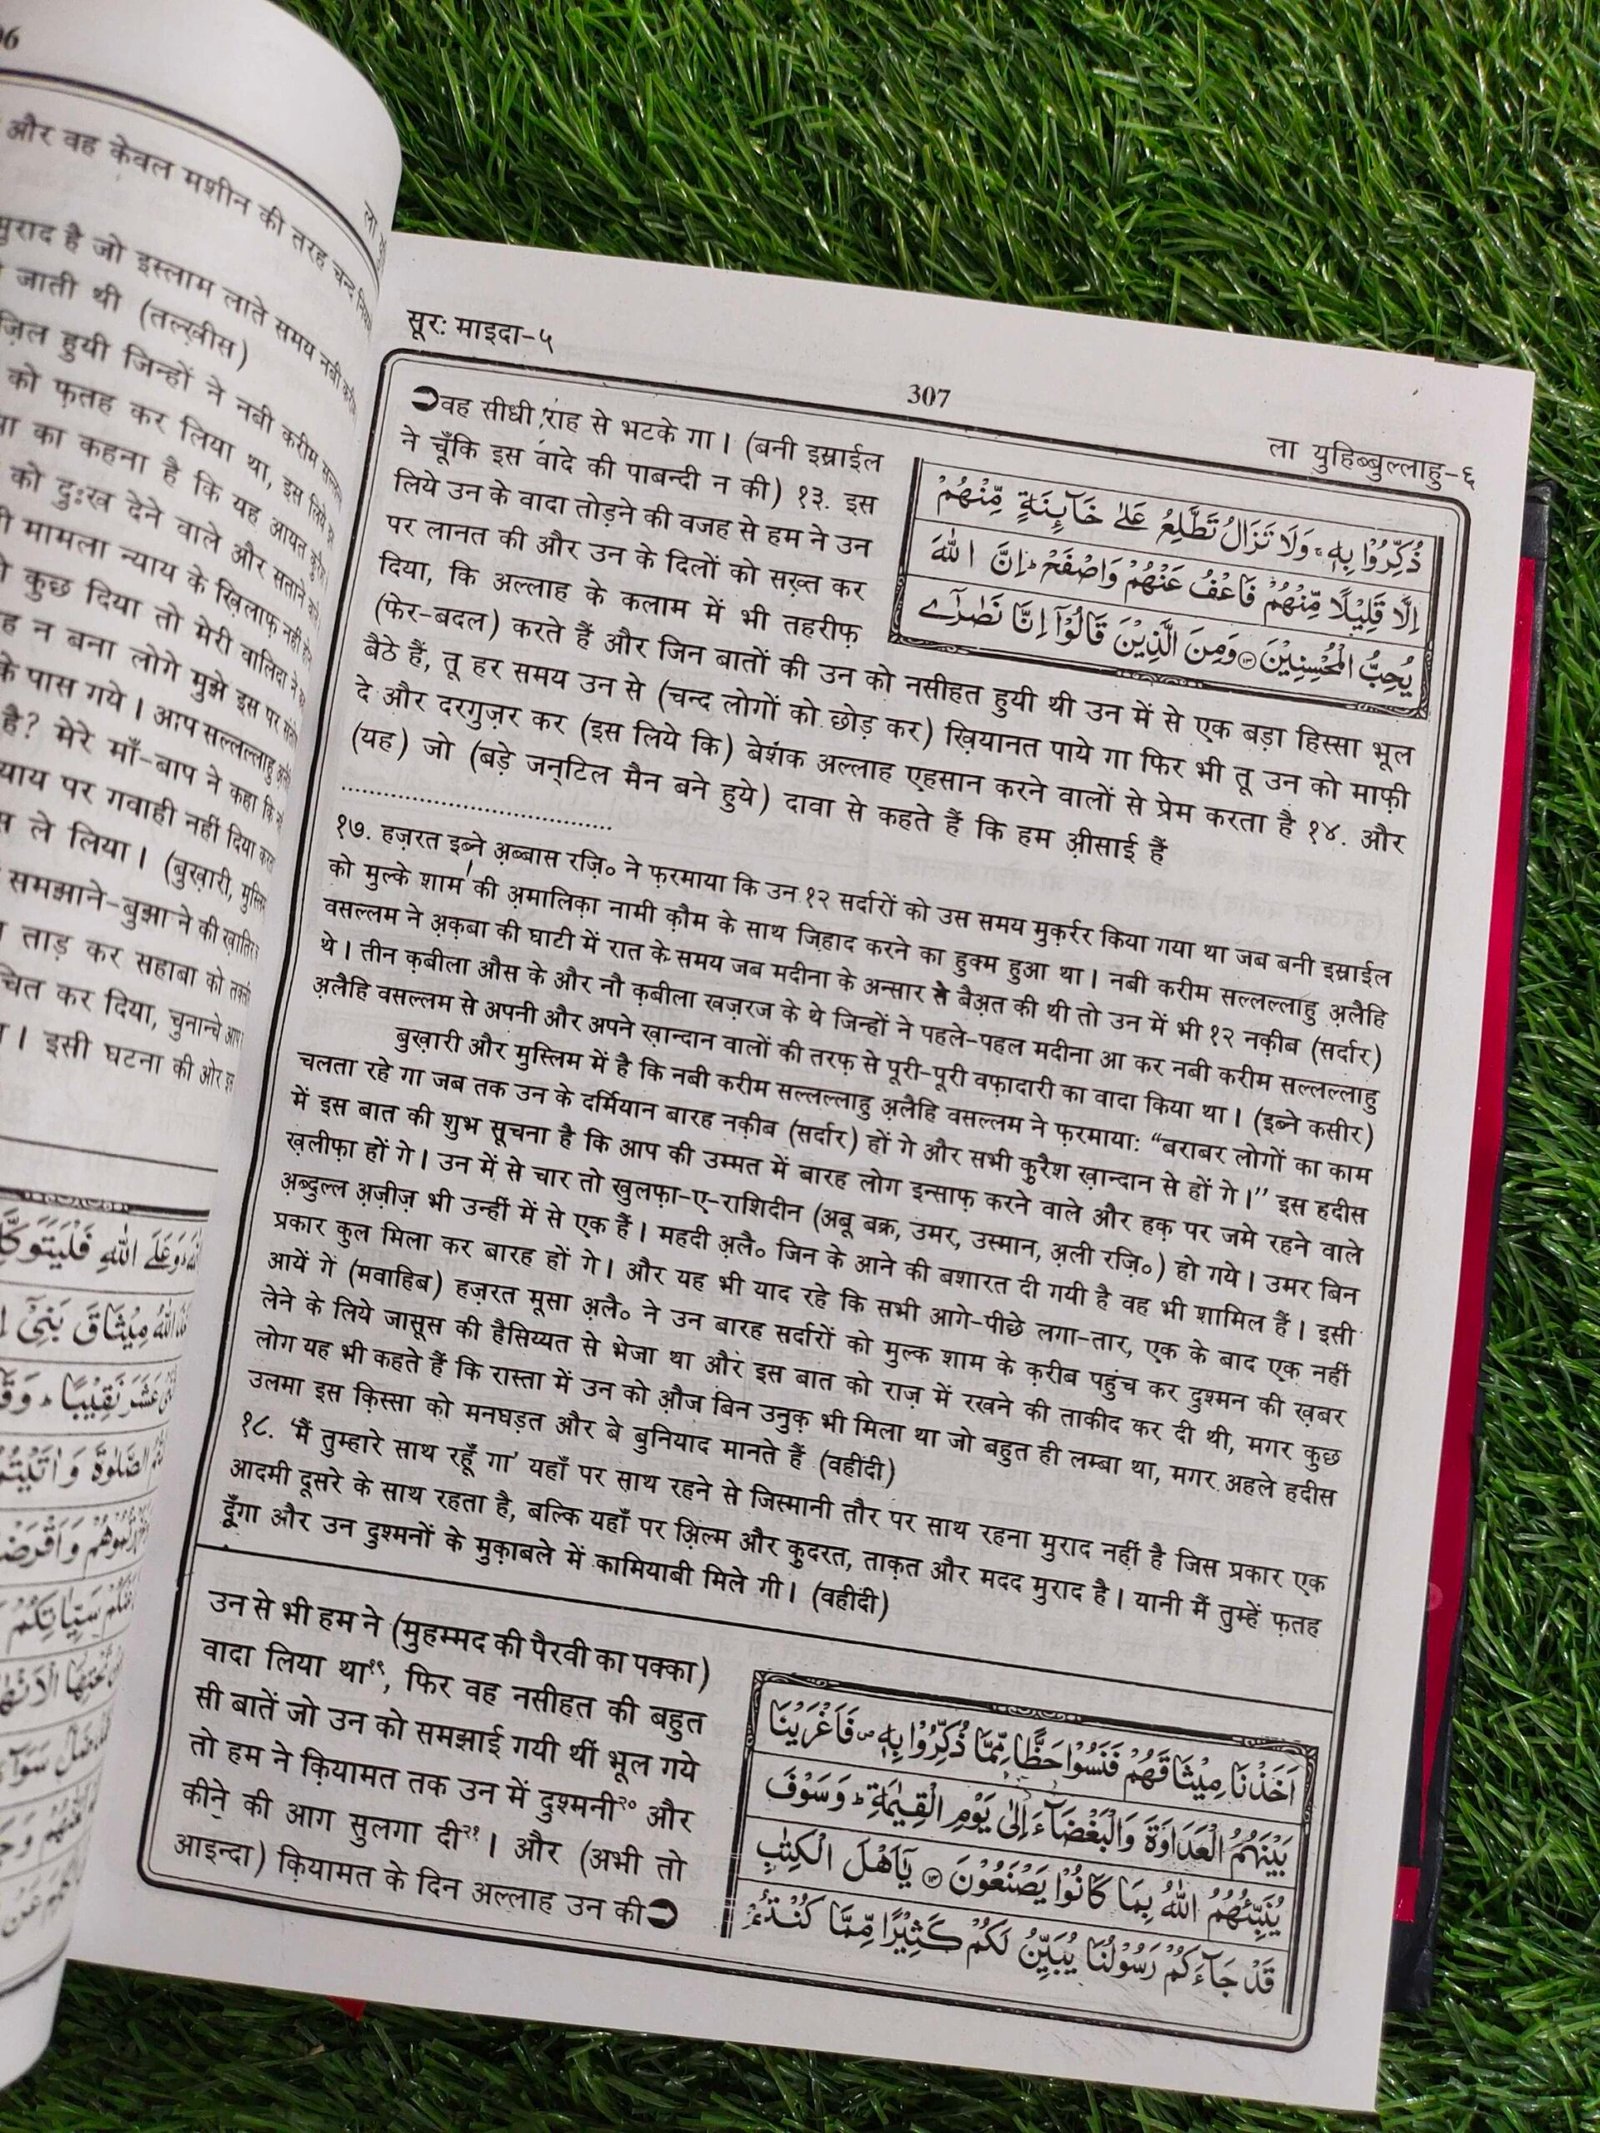 06
और वह केवल मशीन की तरह चन्द
मुराद है जो इस्लाम लाते समय नबी करीम
जाती थी (तल्ख़ीस)
हुयी जिन्हों ने नबी करीम
को फ़तह कर लिया था, इस लिये
का कहना है कि यह आयत
को दुःख देने वाले और सताने वाले
मामला न्याय के ख़िलाफ़ नहीं होना
कुछ दिया तो मेरी वालिदा ने
न बना लोगे मुझे इस पर
के पास गये। आप सल्लल्लाहु
है? मेरे माँ-बाप ने कहा कि
पर गवाही नहीं दिया करता
ले लिया। (बुख़ारी, मुस्लिम
समझाने-बुझा ने की ख़ातिर
ताड़ कर सहाबा को
कर दिया, चुनान्चे आप
। इसी घटना की ओर इस
सूरः माइदा-५
307
ला युहिब्बुल्लाहु-६
वह सीधी राह से भटके गा। (बनी इस्राईल
ने चूँकि इस वादे की पाबन्दी न की) १३. इस
लिये उन के वादा तोड़ने की वजह से हम ने उन
पर लानत की और उन के दिलों को सख़्त कर
दिया, कि अल्लाह के कलाम में भी तहरीफ़
(फेर-बदल) करते हैं और जिन बातों की उन को नसीहत हुयी थी उन में से एक बड़ा हिस्सा भूल
बैठे हैं, तू हर समय उन से (चन्द लोगों को छोड़ कर) ख़ियानत पाये गा फिर भी तू उन को माफ़ी
दे और दरगुज़र कर (इस लिये कि) बेशक अल्लाह एहसान करने वालों से प्रेम करता है १४. और
(यह) जो (बड़े जन्टिल मैन बने हुये) दावा से कहते हैं कि हम अ़ीसाई हैं
ذُكِّرُوْا بِهٖ ۚ وَلَا تَزَالُ تَطَّلِعُ عَلٰى خَآئِنَةٍ مِّنْهُمْ
اِلَّا قَلِيْلًا مِّنْهُمْ فَاعْفُ عَنْهُمْ وَاصْفَحْ ۭ اِنَّ اللّٰهَ
يُحِبُّ الْمُحْسِنِيْنَ ۝ وَمِنَ الَّذِيْنَ قَالُوْٓا اِنَّا نَصٰرٰٓى
१७. हज़रत इब्ने अ़ब्बास रज़ि॰ ने फ़रमाया कि उन १२ सर्दारों को उस समय मुक़र्रर किया गया था जब बनी इस्राईल
को मुल्के शाम की अ़मालिक़ा नामी क़ौम के साथ जि़हाद करने का हुक्म हुआ था। नबी करीम सल्लल्लाहु अ़लैहि
वसल्लम ने अ़क़बा की घाटी में रात के समय जब मदीना के अन्सार से बैअ़त की थी तो उन में भी १२ नक़ीब (सर्दार)
थे। तीन क़बीला औस के और नौ क़बीला खज़रज के थे जिन्हों ने पहले-पहल मदीना आ कर नबी करीम सल्लल्लाहु
अ़लैहि वसल्लम से अपनी और अपने ख़ान्दान वालों की तरफ़ से पूरी-पूरी वफ़ादारी का वादा किया था। (इब्ने कसीर)
बुख़ारी और मुस्लिम में है कि नबी करीम सल्लल्लाहु अ़लैहि वसल्लम ने फ़रमायाः “बराबर लोगों का काम
चलता रहे गा जब तक उन के दर्मियान बारह नक़ीब (सर्दार) हों गे और सभी कुरैश ख़ान्दान से हों गे।” इस हदीस
में इस बात की शुभ सूचना है कि आप की उम्मत में बारह लोग इन्साफ़ करने वाले और हक़ पर जमे रहने वाले
ख़लीफ़ा हों गे। उन में से चार तो खुलफ़ा-ए-राशिदीन (अबू बक्र, उमर, उस्मान, अ़ली रज़ि॰) हो गये। उमर बिन
अ़ब्दुल्ल अ़ज़ीज़ भी उन्हीं में से एक हैं। महदी अ़लै॰ जिन के आने की बशारत दी गयी है वह भी शामिल हैं। इसी
प्रकार कुल मिला कर बारह हों गे। और यह भी याद रहे कि सभी आगे-पीछे लगा-तार, एक के बाद एक नहीं
आयें गें (मवाहिब) हज़रत मूसा अ़लै॰ ने उन बारह सर्दारों को मुल्क शाम के क़रीब पहुंच कर दुश्मन की ख़बर
लेने के लिये जासूस की हैसिय्यत से भेजा था और इस बात को राज़ में रखने की ताकीद कर दी थी, मगर कुछ
लोग यह भी कहते हैं कि रास्ता में उन को औ़ज बिन उनुक़ भी मिला था जो बहुत ही लम्बा था, मगर अहले हदीस
उलमा इस क़िस्सा को मनघड़त और बे बुनियाद मानते हैं (वहीदी)
१८. ‘मैं तुम्हारे साथ रहूँ गा’ यहाँ पर साथ रहने से जिस्मानी तौर पर साथ रहना मुराद नहीं है जिस प्रकार एक
आदमी दूसरे के साथ रहता है, बल्कि यहाँ पर अ़िल्म और क़ुदरत, ताक़त और मदद मुराद है। यानी मैं तुम्हें फ़तह
दूँगा और उन दुश्मनों के मुक़ाबले में कामियाबी मिले गी। (वहीदी)
उन से भी हम ने (मुहम्मद की पैरवी का पक्का)
वादा लिया था१९, फिर वह नसीहत की बहुत
सी बातें जो उन को समझाई गयी थीं भूल गये
तो हम ने क़ियामत तक उन में दुश्मनी२० और
कीने की आग सुलगा दी२१। और (अभी तो
आइन्दा) क़ियामत के दिन अल्लाह उन की
اَخَذْنَا مِيْثَاقَهُمْ فَنَسُوْا حَظًّا مِّمَّا ذُكِّرُوْا بِهٖ ۠ فَاَغْرَيْنَا
بَيْنَهُمُ الْعَدَاوَةَ وَالْبَغْضَآءَ اِلٰى يَوْمِ الْقِيٰمَةِ ۭ وَسَوْفَ
يُنَبِّئُهُمُ اللّٰهُ بِمَا كَانُوْا يَصْنَعُوْنَ ۝ يٰٓاَهْلَ الْكِتٰبِ
قَدْ جَآءَكُمْ رَسُوْلُنَا يُبَيِّنُ لَكُمْ كَثِيْرًا مِّمَّا كُنْتُمْ